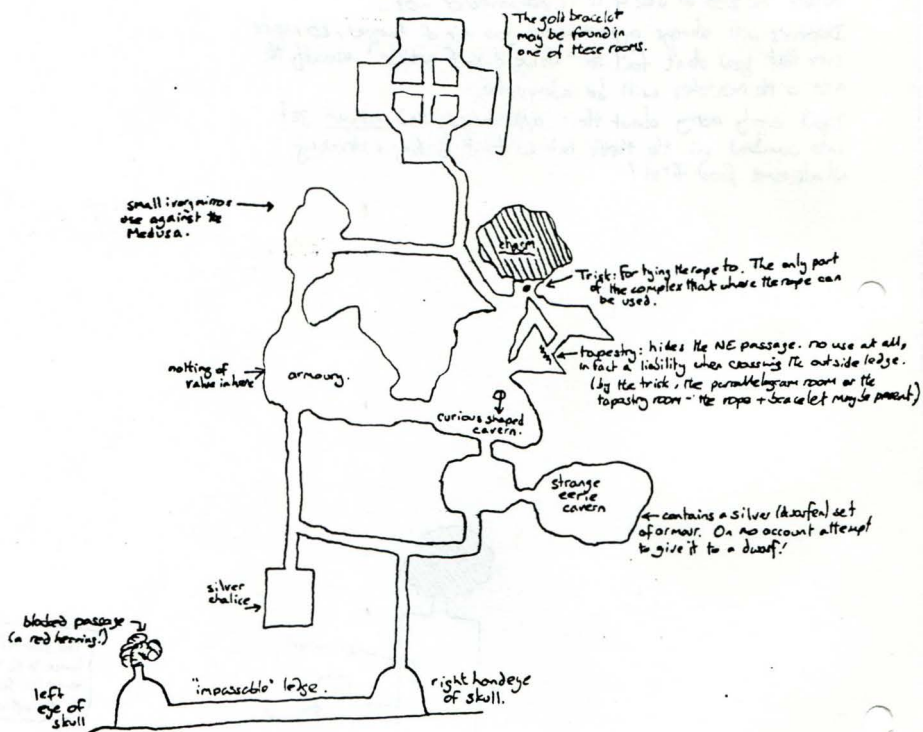 The gold bracelet
may be found in
one of these rooms.
small ivory mirror
use against the
Medusa.
chasm
Trick: For tying the rope to. The only part
of the complex that where the rope can
be used.
tapestry: hides the NE passage. no use at all,
in fact a liability when crossing the outside ledge.
(by the trick, the parallelogram room or the
tapestry room - the rope + bracelet may be present)
nothing of
value in here
armoury.
curious shaped
cavern.
strange
eerie
cavern
contains a silver (dwarfen) set
of armour. On no account attempt
to give it to a dwarf!
silver
chalice
blocked passage
(a red herring!)
"impassable" ledge.
right hand eye
of skull.
left
eye of
skull